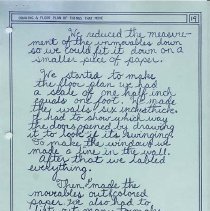 DRAWING A FLOOR PLAN OF THINGS THAT MOVE
19
We reduced the measure-
ment of the unmovables down
so we could fit it down on a
smaller piece of paper.
We started to make
the floor plan we had
a scale of one half inch
equals one foot. We made
the walls six inches thick.
I had to show which way
the doors opened by drawing
it to look if its running.
To make the windows we
made a line in the wall.
After that we labled
everything.
Then I made the
movables out of colored
paper we also had to